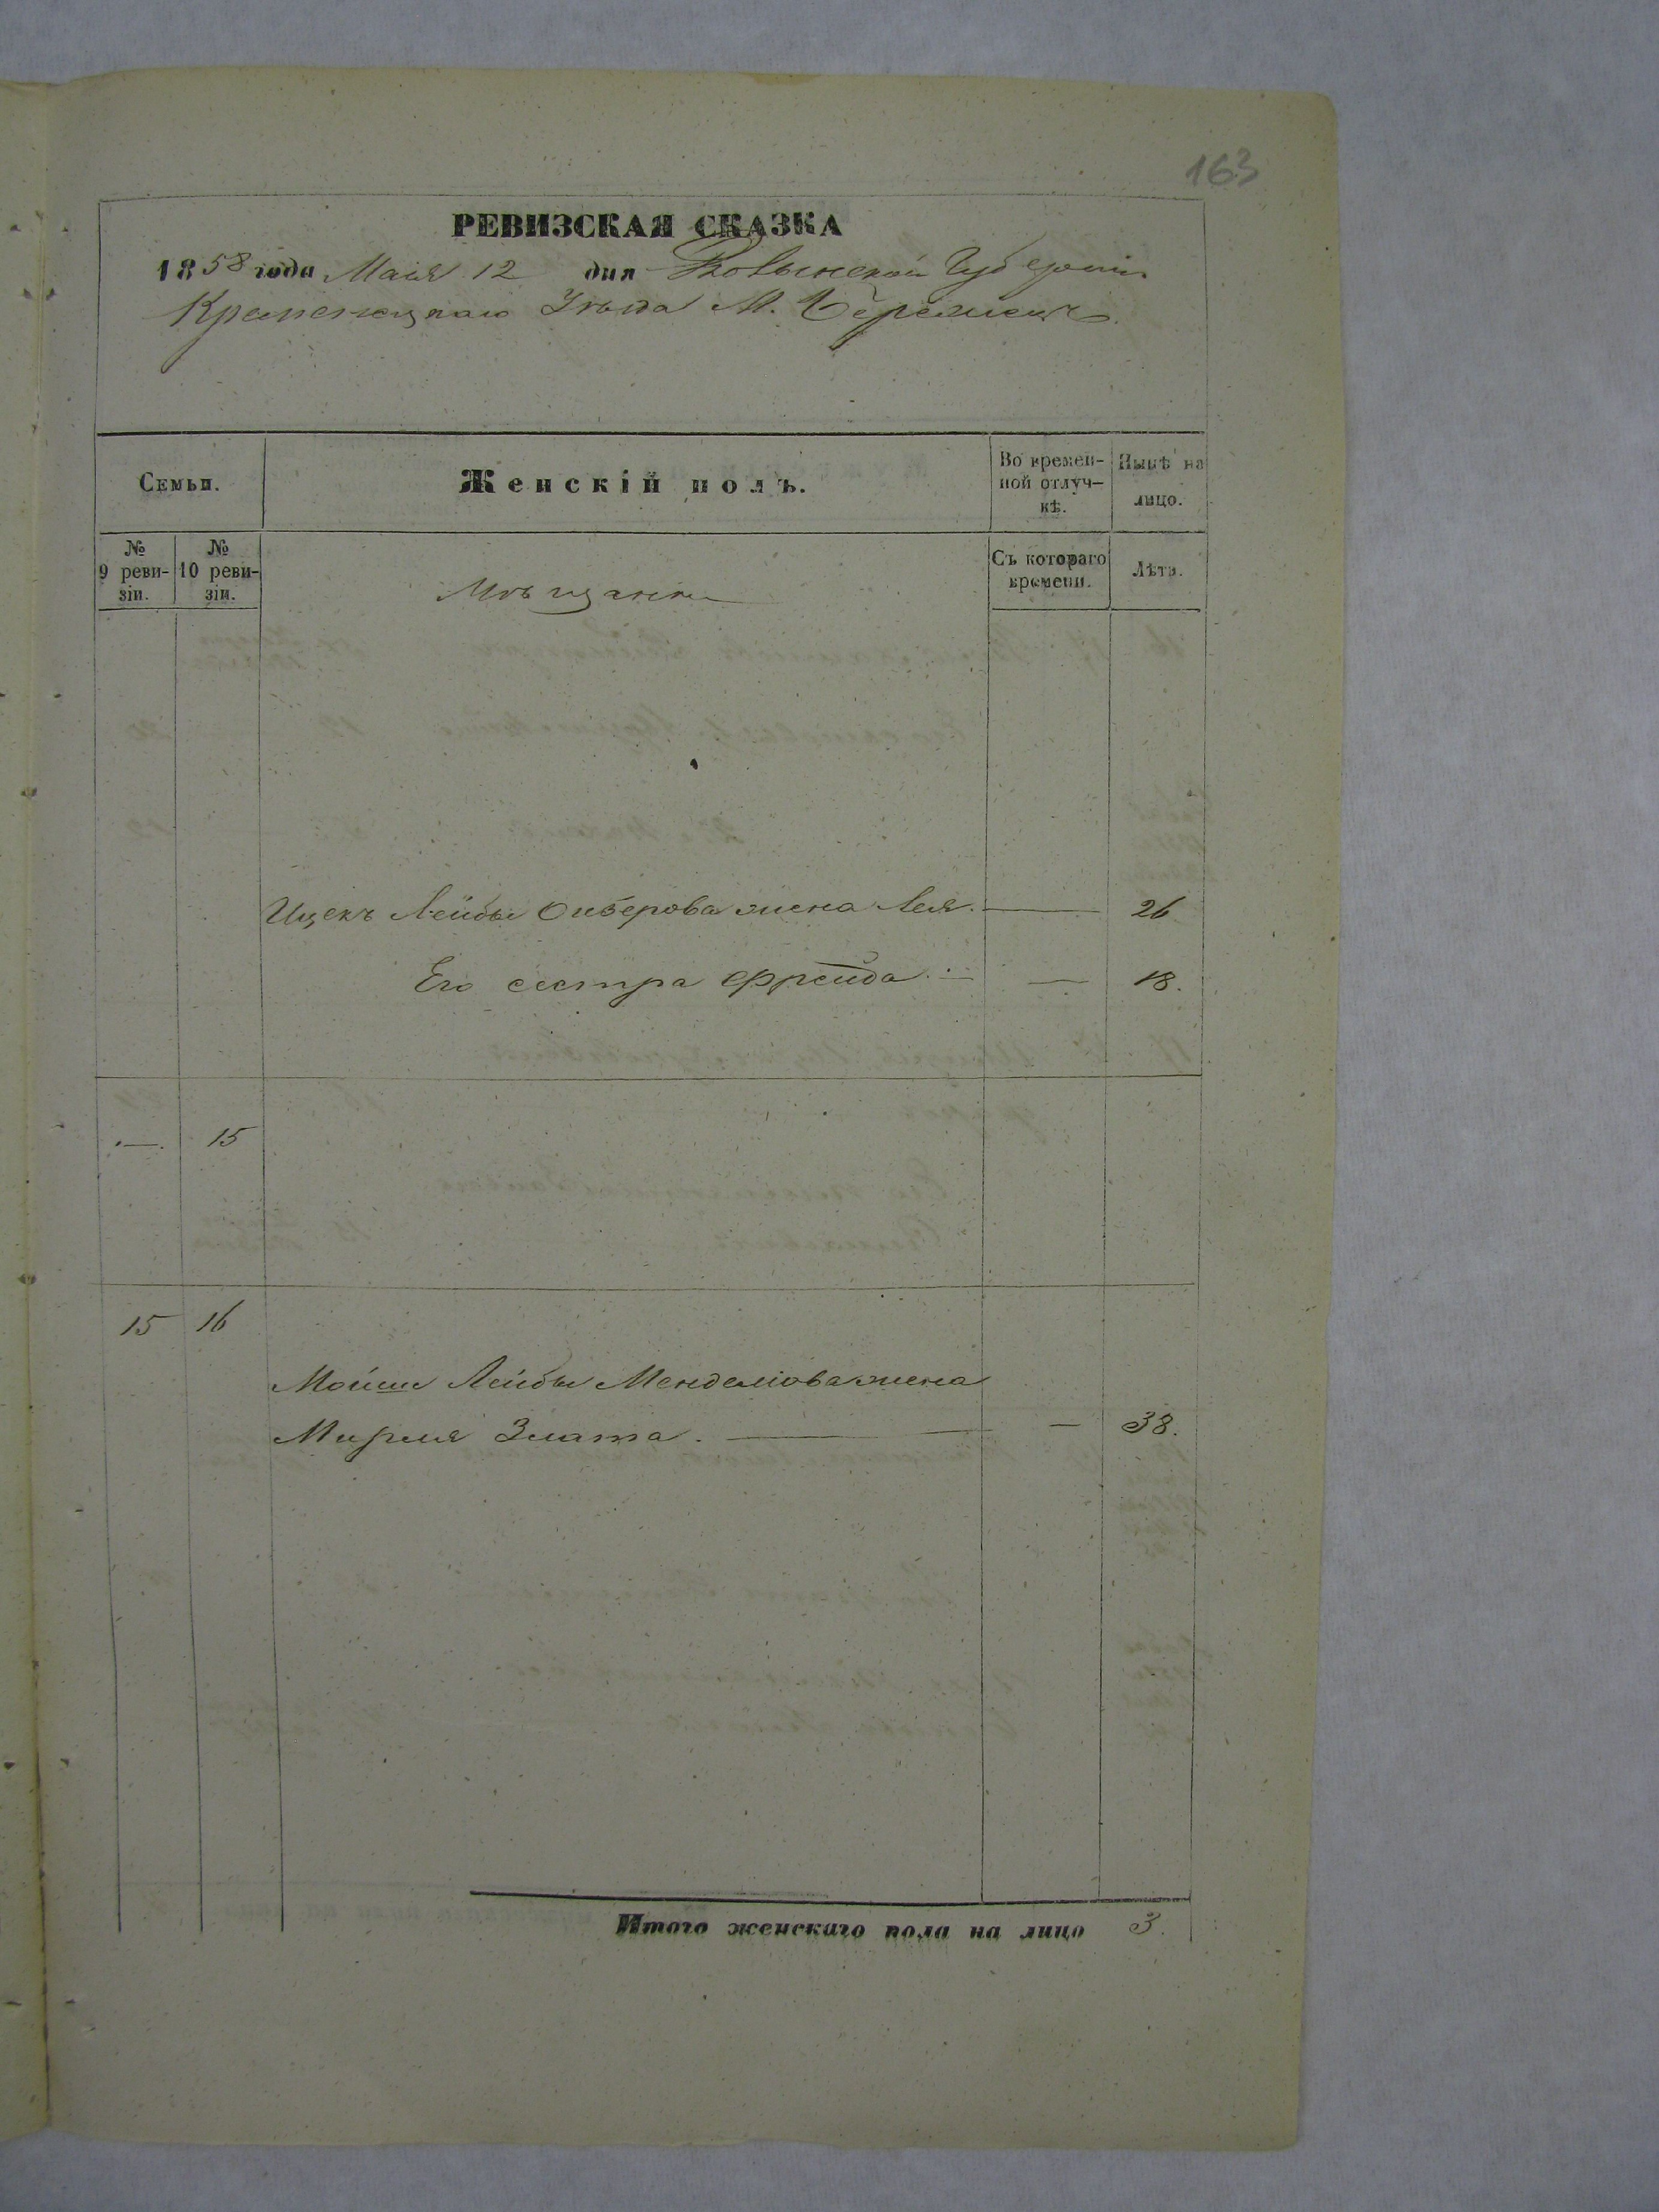 163
РЕВИЗСКАЯ СКАЗКА
1858 года Маія 12 дня Волынской Губерніи
Кременецкаго Уѣзда М.
Семьи.
Женскій полъ.
Во времен-
ной отлуч-
кѣ.
Нынѣ на
лицо.
№
9 реви-
зіи.
№
10 реви-
зіи.
Мѣщанки
Съ котораго
времени.
Лѣта.
Ицекъ Лейбы Оиберова жена Лея. — 26
Его сестра Фрейда. — — 18.
—. 15
15 16
Мойши Лейбы Менделіова жена
Мирля Злата. — — 38.
Итого женскаго пола на лицо 3.